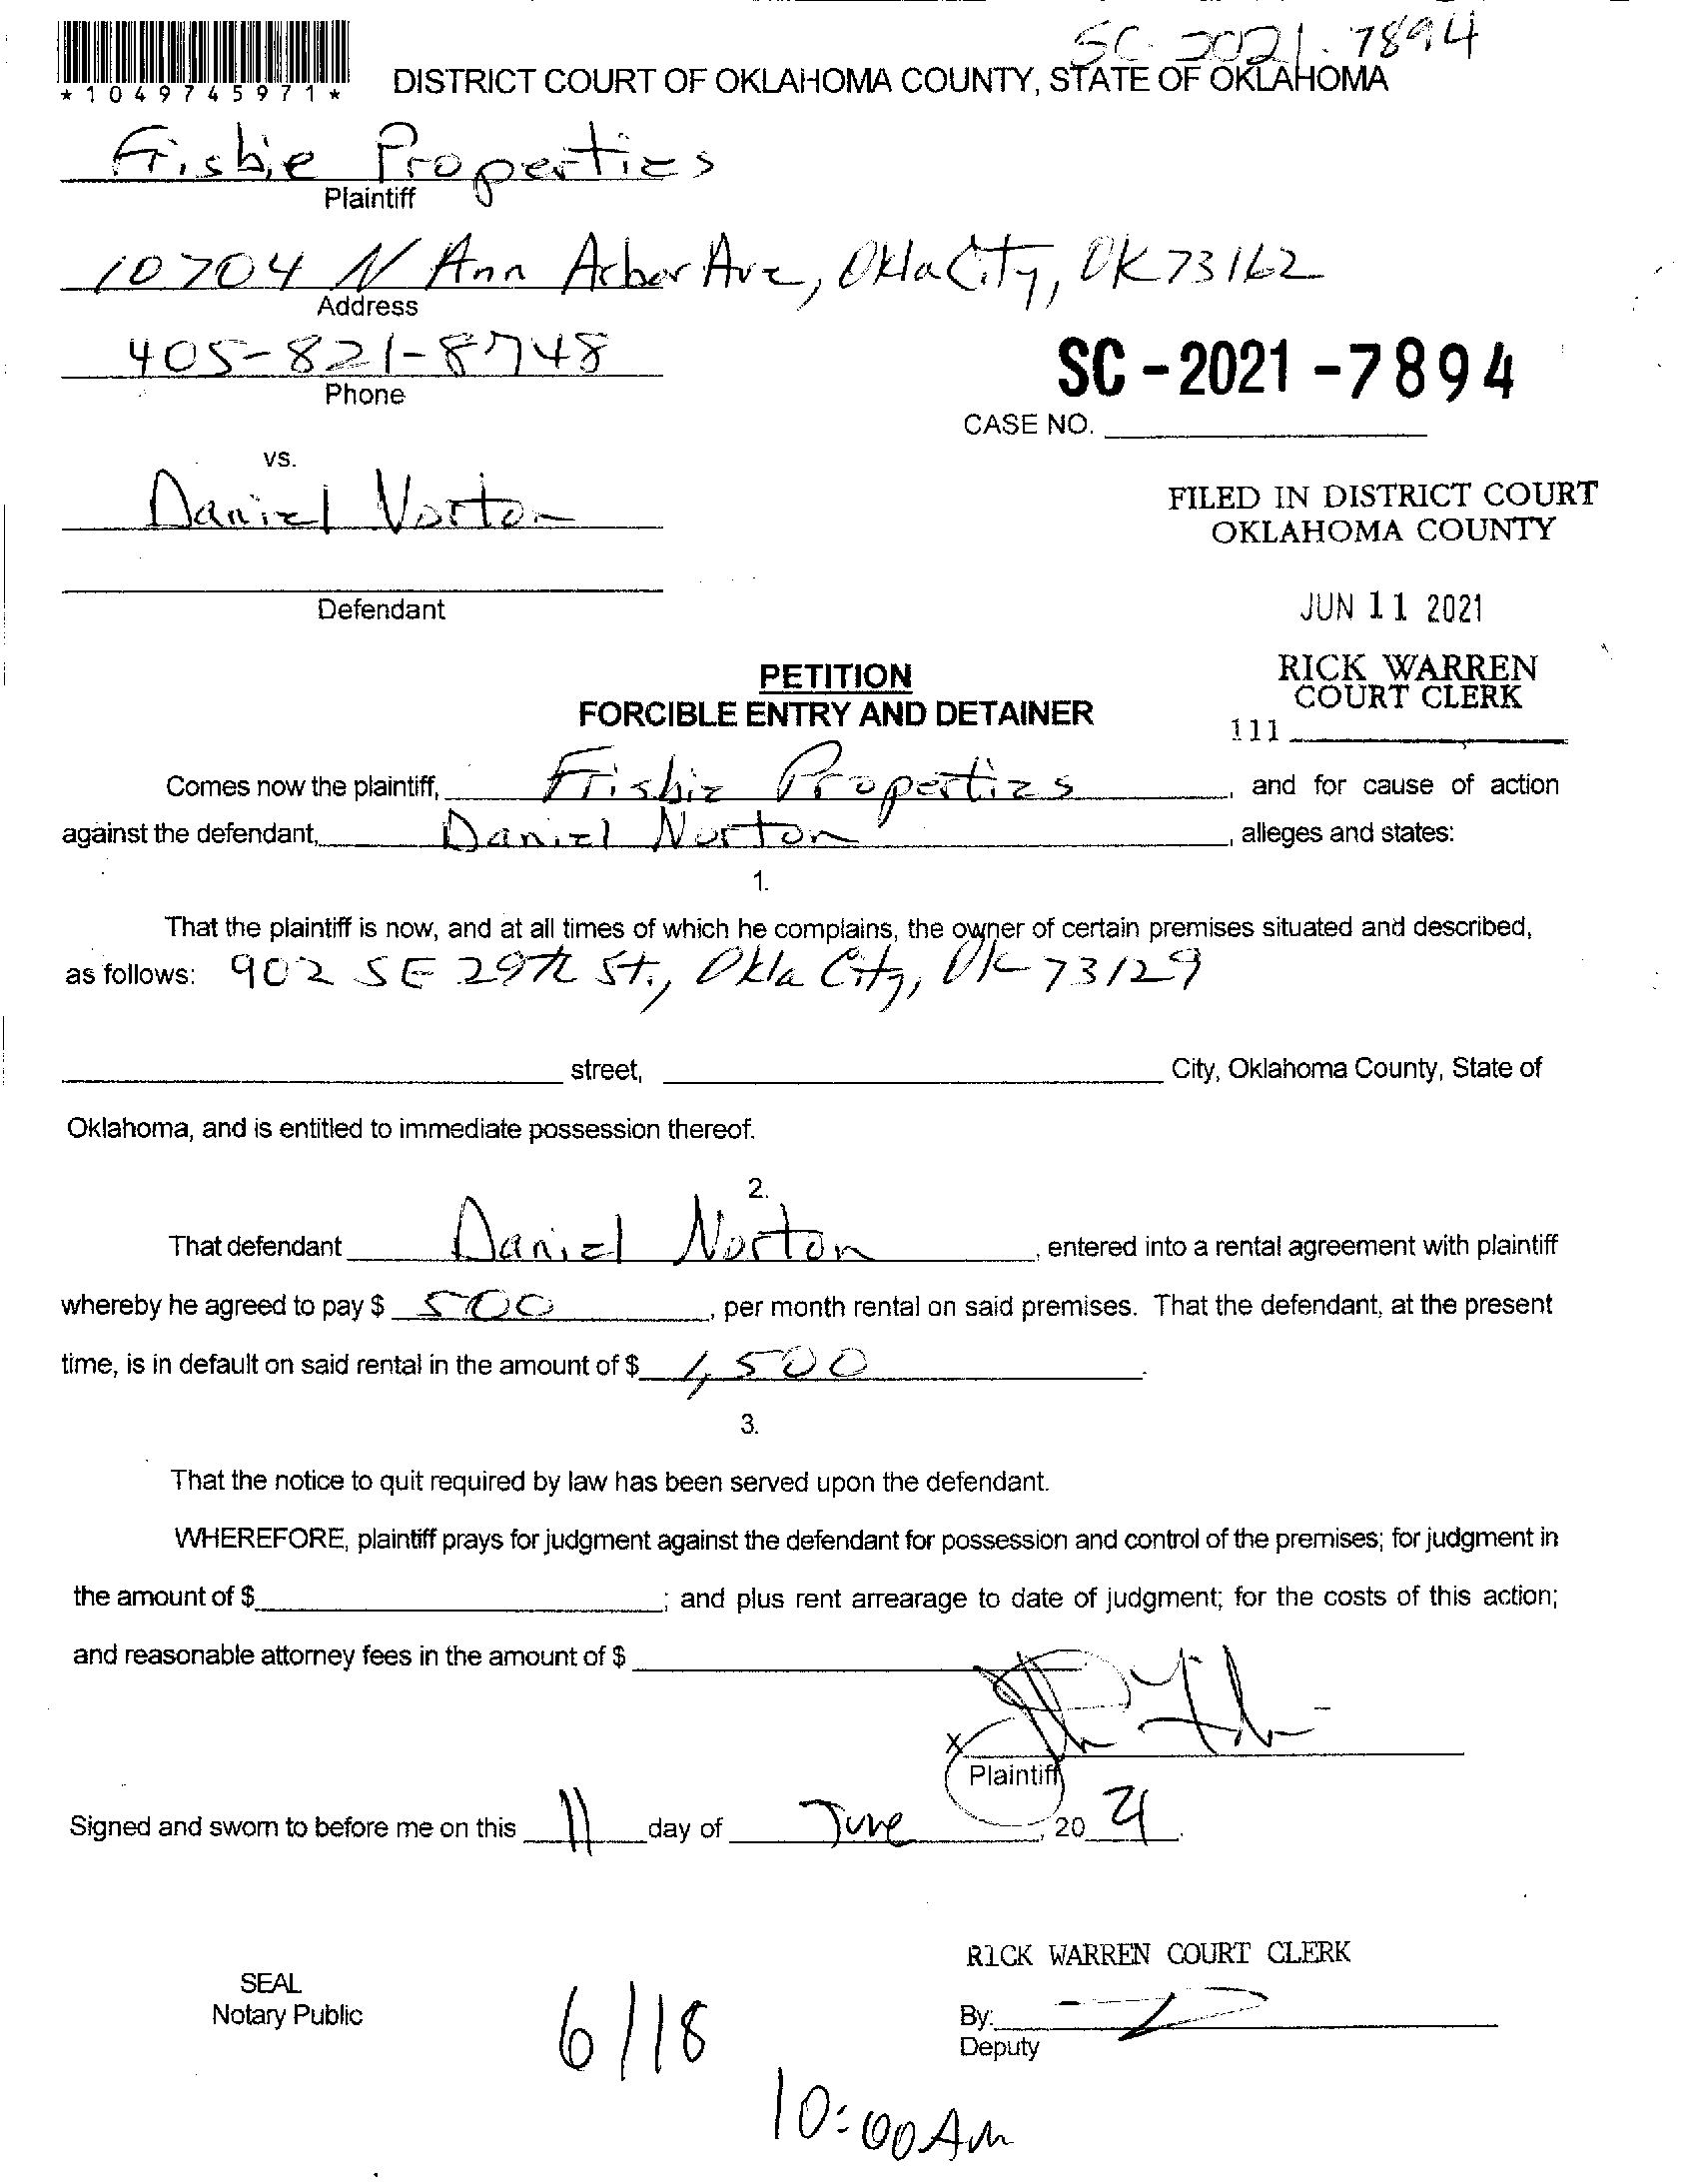 SC-2021-7894
*1049745971*
DISTRICT COURT OF OKLAHOMA COUNTY, STATE OF OKLAHOMA
Frisbie Properties
Plaintiff
10704 N Ann Arbor Ave, Okla City, OK 73162
Address
405-821-8748
Phone
SC-2021-7894
CASE NO.
vs.
Daniel Norton
FILED IN DISTRICT COURT
OKLAHOMA COUNTY
Defendant
JUN 11 2021
PETITION
FORCIBLE ENTRY AND DETAINER
RICK WARREN
COURT CLERK
111
Comes now the plaintiff, Frisbie Properties, and for cause of action
against the defendant, Daniel Norton, alleges and states:
1.
That the plaintiff is now, and at all times of which he complains, the owner of certain premises situated and described,
as follows: 902 SE 29th St., Okla City, OK 73129
street, City, Oklahoma County, State of
Oklahoma, and is entitled to immediate possession thereof.
2.
That defendant Daniel Norton, entered into a rental agreement with plaintiff
whereby he agreed to pay $ 500, per month rental on said premises. That the defendant, at the present
time, is in default on said rental in the amount of $ 1,500.
3.
That the notice to quit required by law has been served upon the defendant.
WHEREFORE, plaintiff prays for judgment against the defendant for possession and control of the premises; for judgment in
the amount of $; and plus rent arrearage to date of judgment; for the costs of this action;
and reasonable attorney fees in the amount of $
X
Plaintiff
Signed and sworn to before me on this 11 day of June, 20 21.
RICK WARREN COURT CLERK
SEAL
Notary Public
By:
Deputy
6/18
10:00 AM